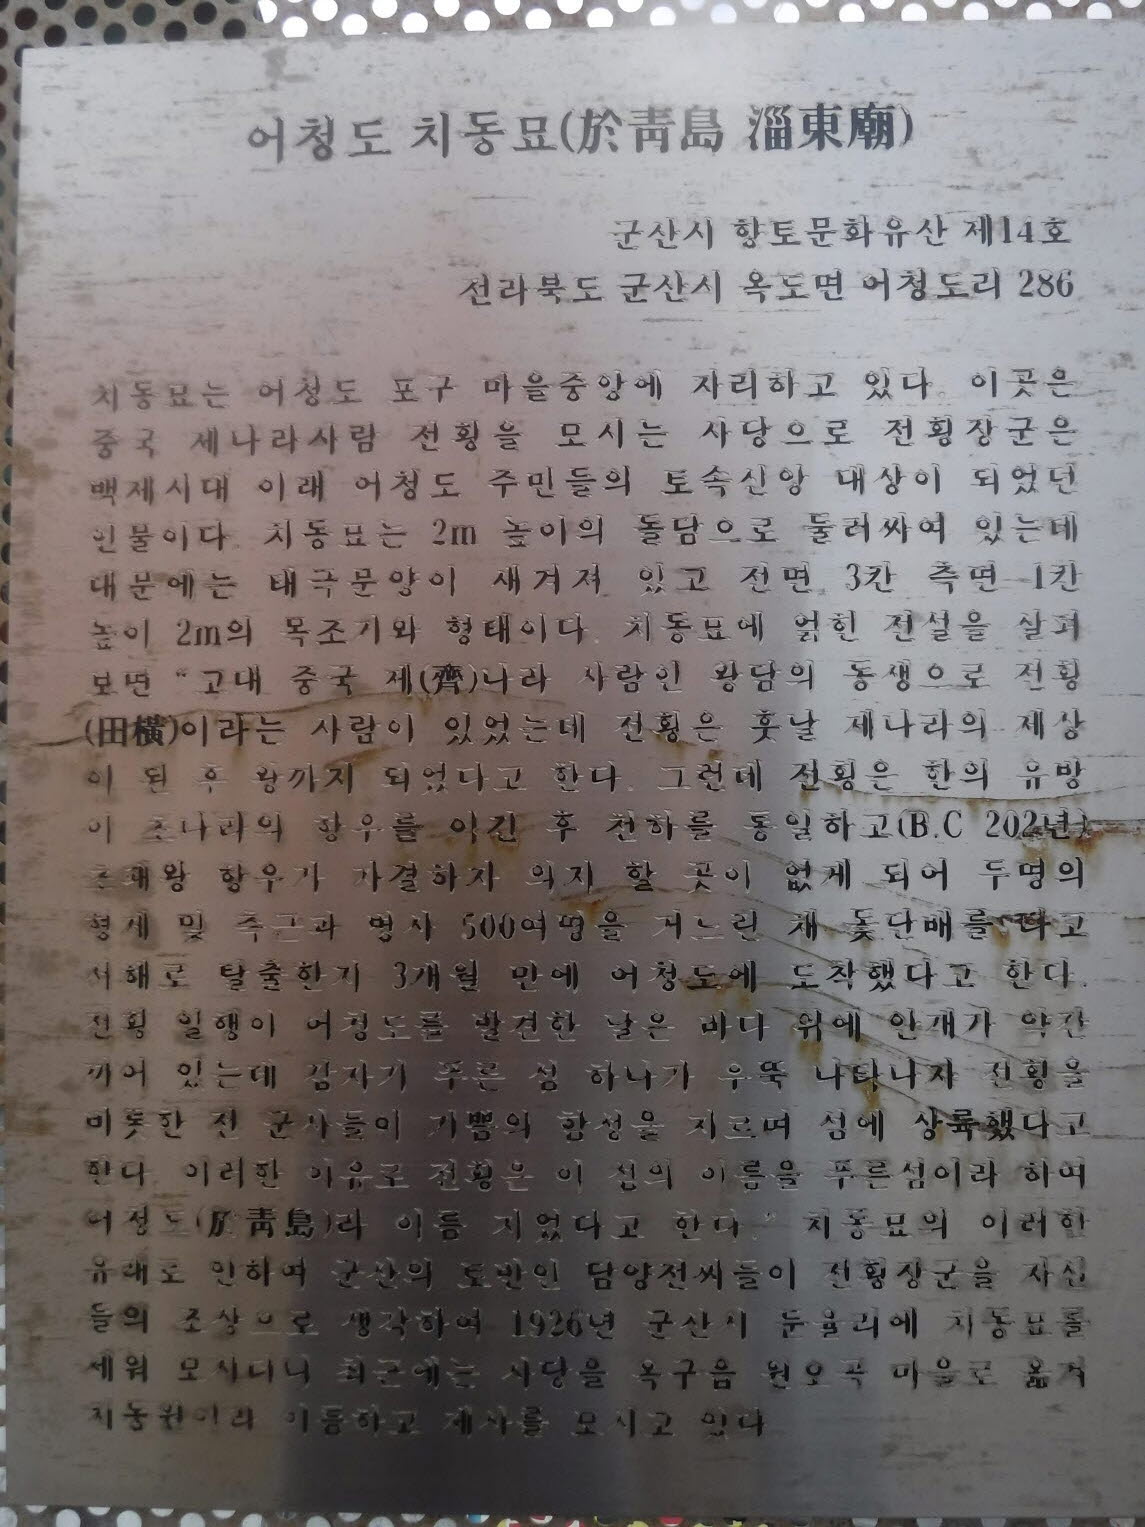 어청도 치동묘(於靑島 淄東廟)
군산시 향토문화유산 제14호
전라북도 군산시 옥도면 어청도리 286
치동묘는 어청도 포구 마을중앙에 자리하고 있다. 이곳은
중국 제나라사람 전횡을 모시는 사당으로 전횡장군은
백제시대 이래 어청도 주민들의 토속신앙 대상이 되었던
인물이다. 치동묘는 2m 높이의 돌담으로 둘러싸여 있는데
대문에는 태극문양이 새겨져 있고 전면 3칸 측면 1칸
높이 2m의 목조기와 형태이다. 치동묘에 얽힌 전설을 살펴
보면 “고대 중국 제(齊)나라 사람인 왕담의 동생으로 전횡
(田橫)이라는 사람이 있었는데 전횡은 훗날 제나라의 재상
이 된 후 왕까지 되었다고 한다. 그런데 전횡은 한의 유방
이 초나라의 항우를 이긴 후 천하를 통일하고(B.C 202년)
초패왕 항우가 자결하자 의지 할 곳이 없게 되어 두명의
형제 및 측근과 병사 500여명을 거느린 채 돛단배를 타고
서해로 탈출한지 3개월 만에 어청도에 도착했다고 한다.
전횡 일행이 어청도를 발견한 날은 바다 위에 안개가 약간
끼어 있는데 갑자기 푸른 섬 하나가 우뚝 나타나자 전횡을
비롯한 전 군사들이 기쁨의 함성을 지르며 섬에 상륙했다고
한다. 이러한 이유로 전횡은 이 섬의 이름을 푸른섬이라 하여
어청도(於靑島)라 이름 지었다고 한다.” 치동묘의 이러한
유래로 인하여 군산의 토반인 담양전씨들이 전횡장군을 자신
들의 조상으로 생각하여 1926년 군산시 둔율리에 치동묘를
세워 모시더니 최근에는 사당을 옥구읍 원오곡 마을로 옮겨
치동원이라 이름하고 제사를 모시고 있다